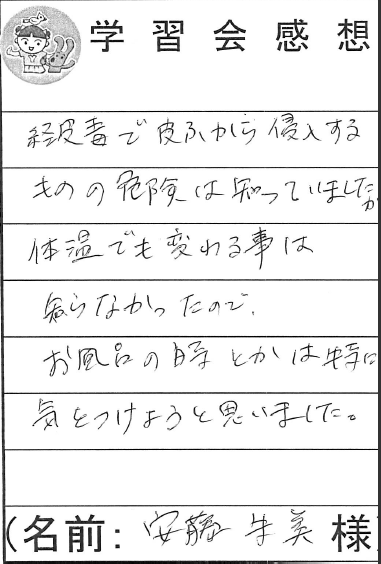 学習会感想
経皮毒で皮ふから侵入する
ものの危険は知っていましたが
体温でも変わる事は
知らなかったので、
お風呂の時とかは特に
気をつけようと思いました。
(名前: 安藤 美様)